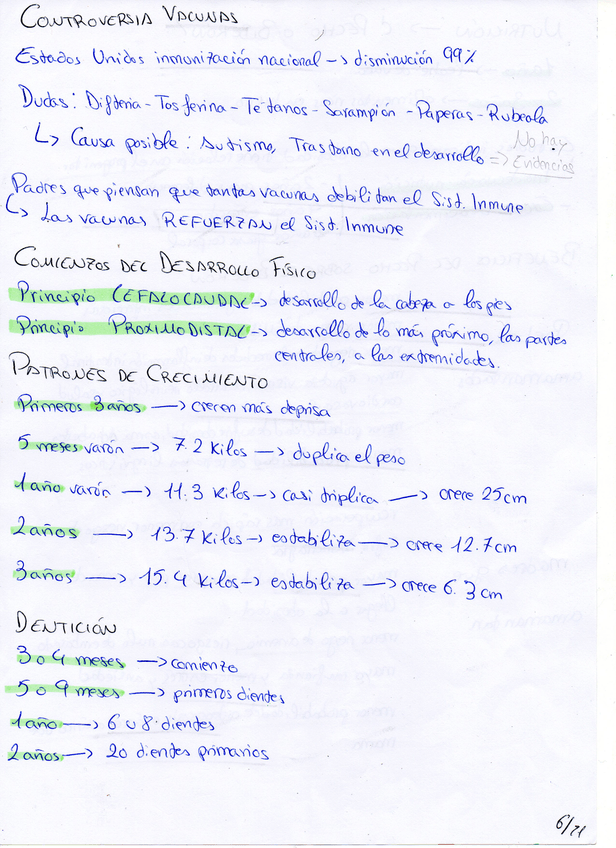 CONTROVERSIA VACUNAS
Estados Unidos inmunización nacional -> disminución 99%
Dudas: Difteria - Tosferina - Tétanos - Sarampión - Paperas - Rubeola
↳ Causa posible: Autismo, Trastorno en el desarrollo => No hay Evidencias
Padres que piensan que tantas vacunas debilitan el Sist. Inmune
↳ Las vacunas REFUERZAN el Sist. Inmune
COMIENZOS DEL DESARROLLO FÍSICO
Principio CEFALOCAUDAL -> desarrollo de la cabeza a los pies
Principio PROXIMODISTAL -> desarrollo de lo más próximo, las partes
centrales, a las extremidades.
PATRONES DE CRECIMIENTO
Primeros 3 años -> crecen más deprisa
5 meses varón -> 7.2 Kilos -> duplica el peso
1 año varón -> 11.3 Kilos -> casi triplica -> crece 25 cm
2 años -> 13.7 Kilos -> estabiliza -> crece 12.7 cm
3 años -> 15.4 Kilos -> estabiliza -> crece 6.3 cm
DENTICIÓN
3 o 4 meses -> comienzo
5 o 9 meses -> primeros dientes
1 año -> 6 u 8 dientes
2 años -> 20 dientes primarios